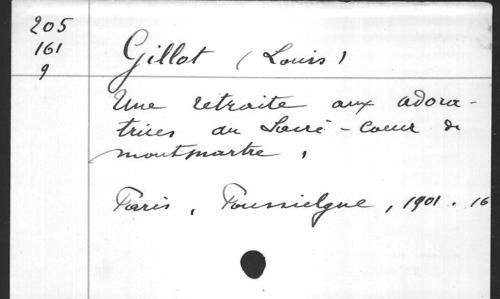 205
161
9
Gillot (Louis)
Une retraite aux adora-
trices du Sacré-Coeur de
montmartre,
Paris, Poussielgue, 1901. 16